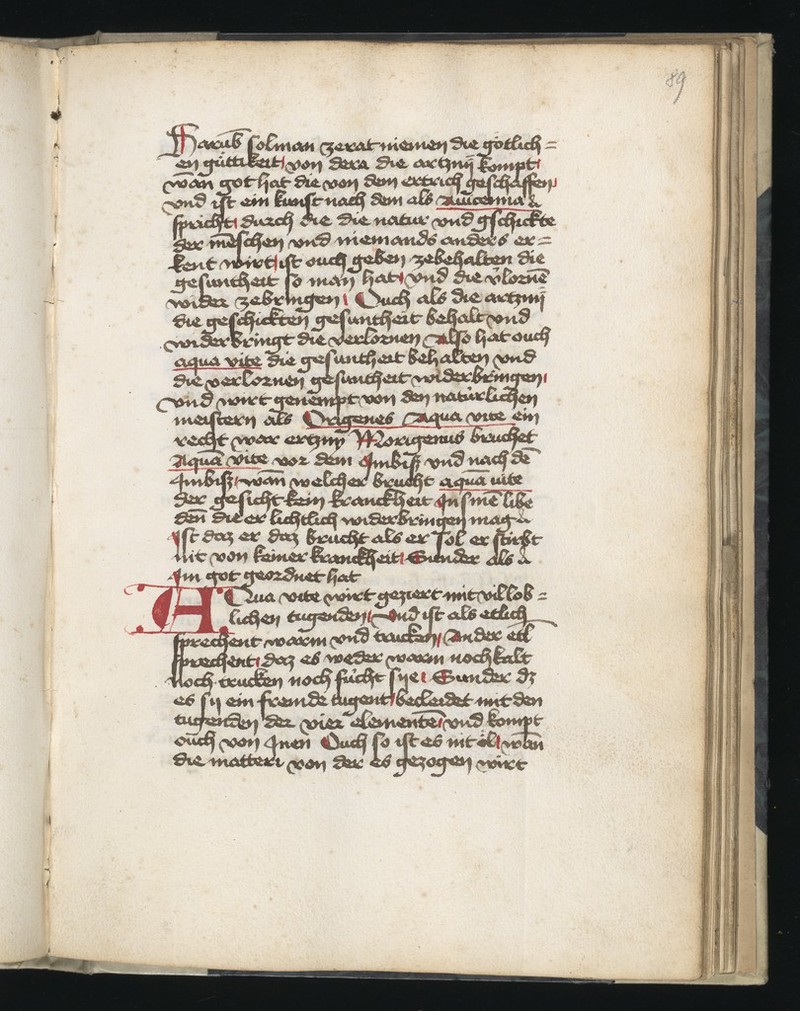 89
Harūb sol man ze rat niemen die götlich=
en güttikeit von dera die artznÿ kompt
wan got hat die von dem ertrich geschaffen
vnd ist ein kunst nach dem als Auicenna
spricht durch die die natur vnd gschickte
der mēschen vnd niemands anders er=
kent wirt ist ouch geben ze behalten die
gesuntheit so man hat vnd die v̓lornē
wider ze bringen Ouch als die artznÿ
die geschickten gesuntheit behalt vnd
widerbringt die verlornen Also hat ouch
aqua vite die gesuntheit behalten vnd
die verlornen gesuntheit widerbringen
vnd wirt genempt von den natürlichen
meistern als Origenes Aqua vite ein
recht war ertzny Morigenus bruchet
Aquā vite vor dem Jmbiß vnd nach dē
Jmbiß wān welcher brucht aquā uite
der gesicht kein kranckheit Jn sinē libe
denn die er lichtlich widerbringen mag
Jst daz er daz brucht als er sol er stirbt
nit von keiner kranckheit Sunder als
Jm got geordnet hat
AQua vite wirt geziert mit vil lob=
lichen tugenden Vnd ist als etlich
sprechent warm vnd trucken Ander etl
sprechent daz es weder warm noch kalt
noch trucken noch fücht sye Sunder dz
es sy ein fremde tugent becleidet mit den
tugenden der vier elementē vnd kompt
ouch von Jnen Ouch so ist es nit öl wān
die matteri von der es gezogen wirt